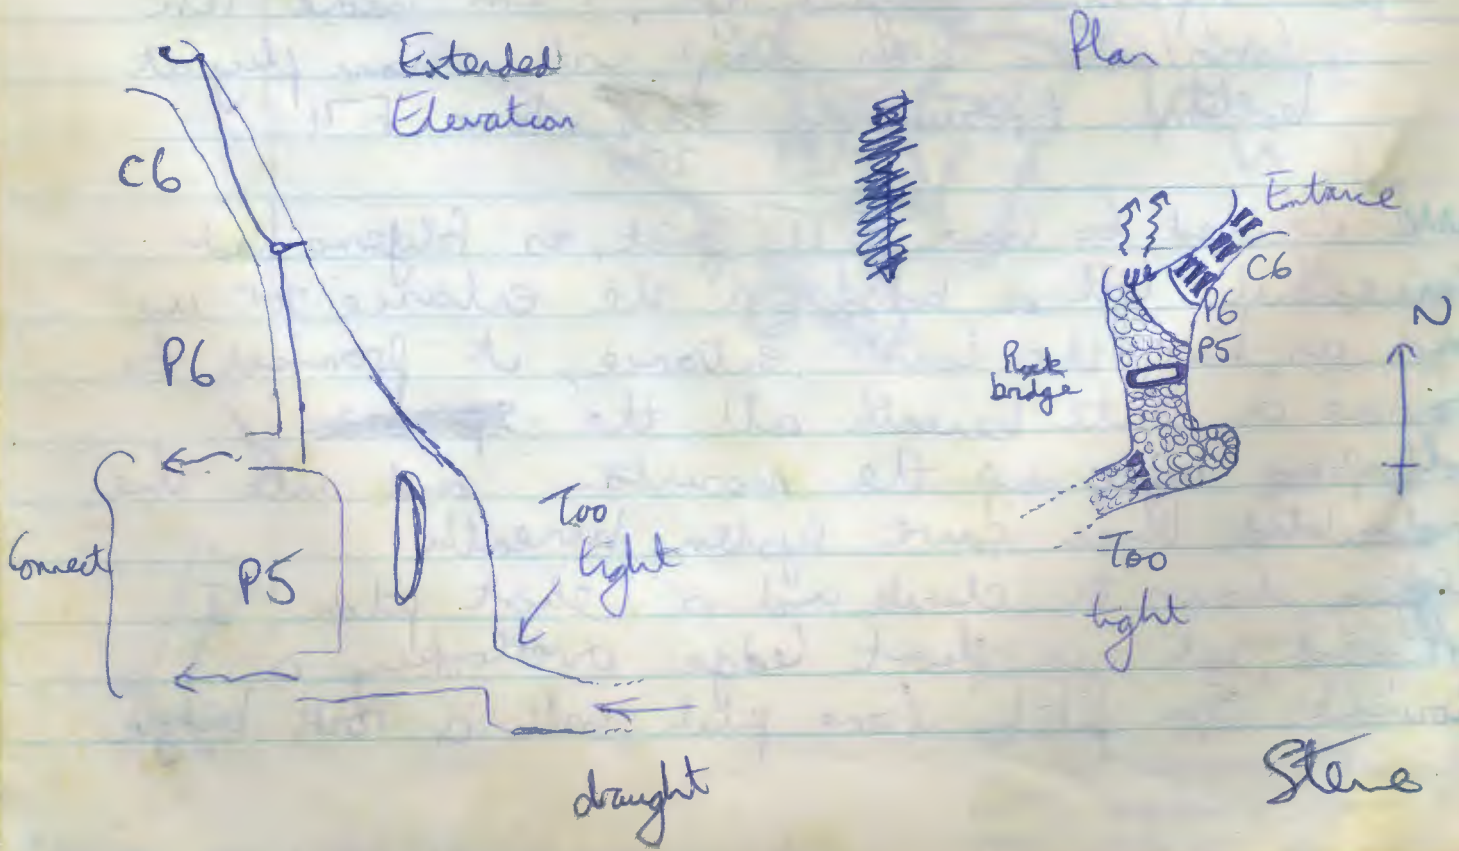 Extended
Elevation
C6
P6
Connect
P5
Too
tight
draught
Plan
Entance
C6
P6
P5
Rock
bridge
N
Too
tight